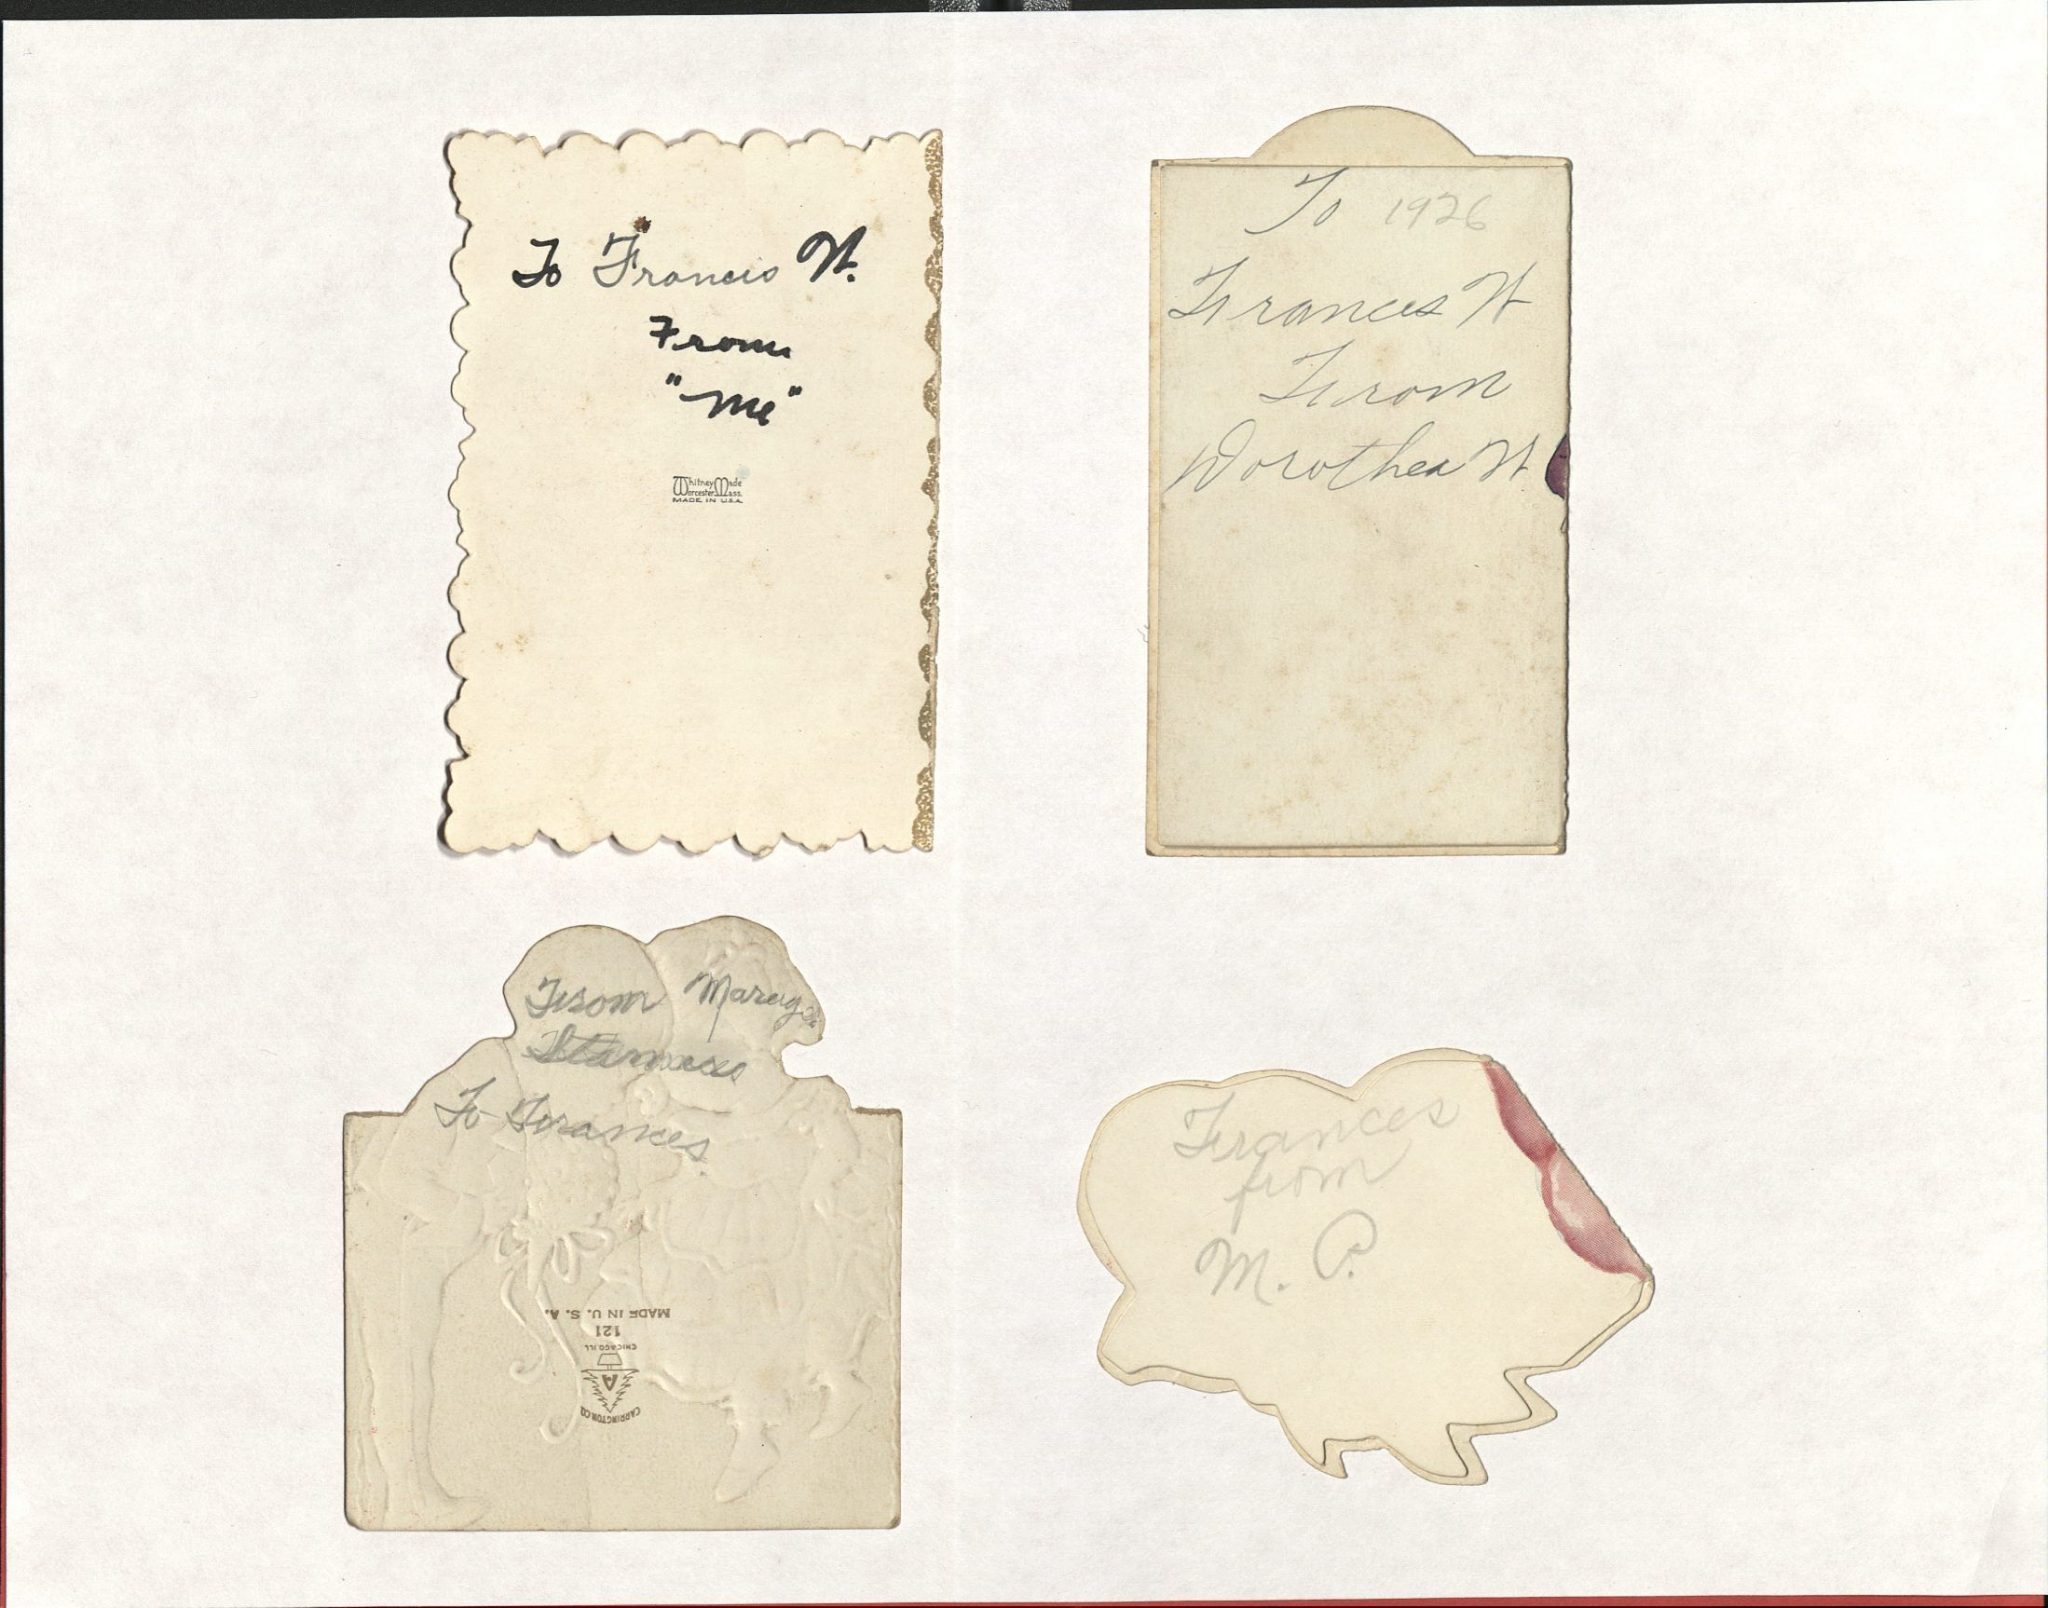 To Francis W.
From
"Me"
Whitney Made
Worcester Mass.
MADE IN U.S.A.
To 1926
Frances W
From
Dorothea W
From
To Frances
MADE IN U. S. A.
121
CHICAGO ILL
A
CARRINGTON CO
Frances
from
M. P.